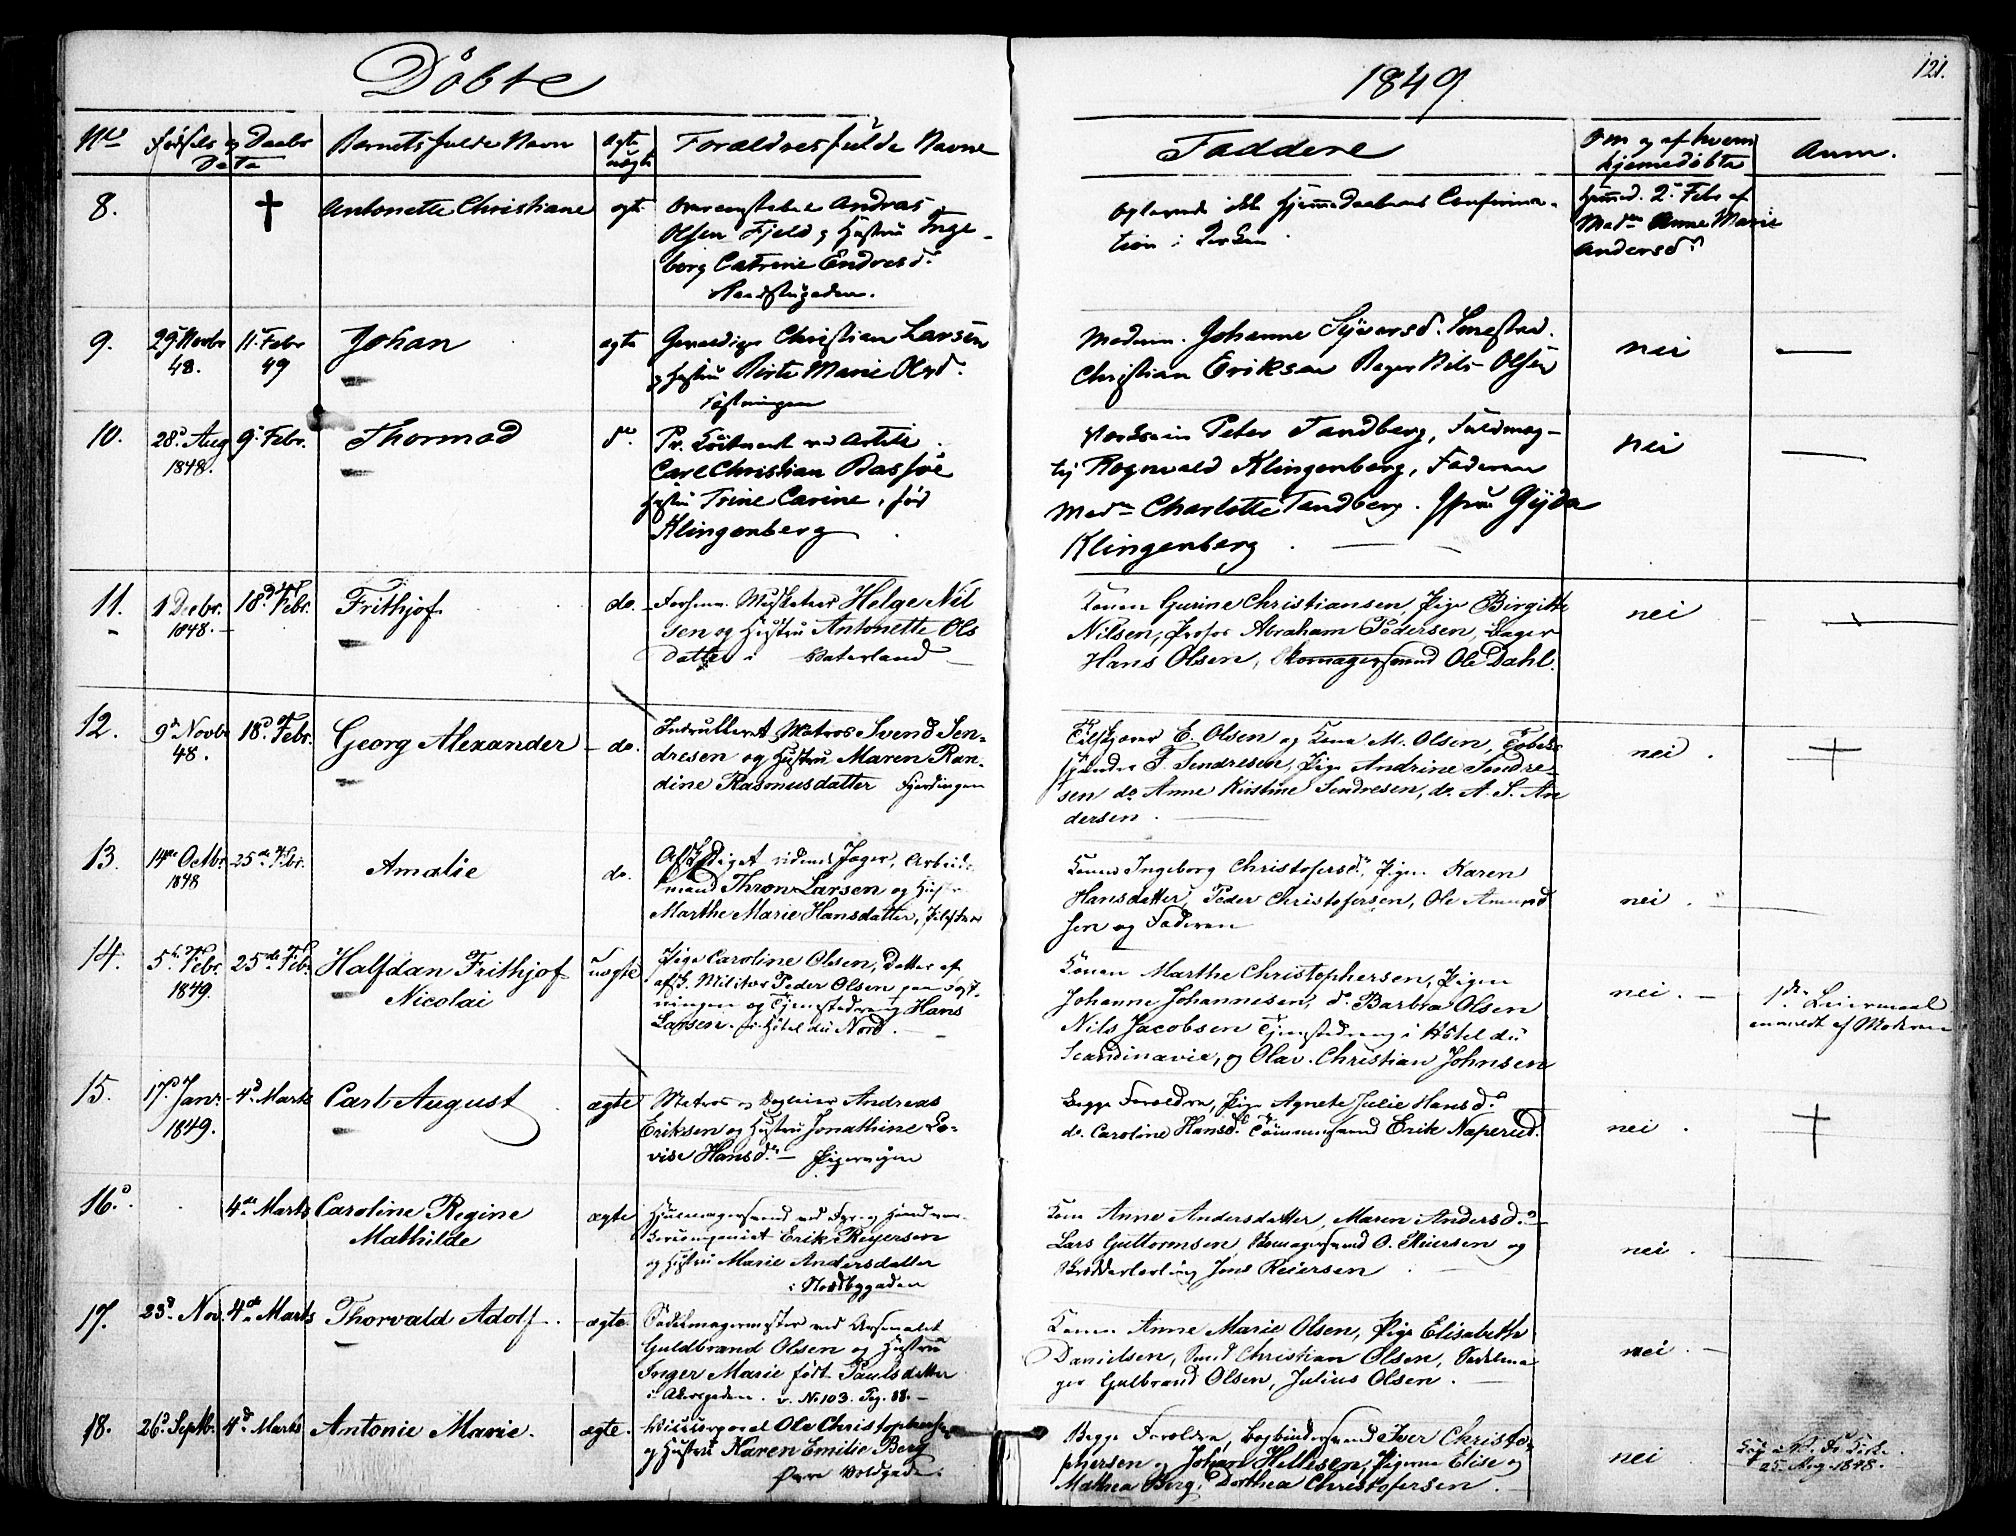 Døbte
1849.
121.
No Fødsels og Daabs Data Barnets fulde Navn ægte uægte Forældres fulde Navne Faddere Om og af hvem hjemmedøbte Anm.
8. † Antonette Christiane ægte Andreas
Olsen Fjeld og Hustru Inge-
borg Catrine Endresd.
Confirma-
tion i
Hjemmed. 2 Febr af
Madm Anne Marie
Andersd.
9. 29 Novbr 48. 11 Febr 49 Johan ægte Christian Larsen
og Hustru Birte Marie Olsd.
Fæstningen
Johanne Syversd.
Christian Eriksen Nils Olsen
nei
10. 28 Aug 1848. 9 Febr. Thormod do Pr. Løitnant ved Artill.
Carl Christian Bassøe
Hustru Trine Carine, fød
Klingenberg
Peter Tandberg, Fuldmæg-
tig Rognvald Klingenberg, Faderen
Madm Charlotte Tandberg. Gyda
Klingenberg.
nei
11. 1 Decbr. 1848. 18d Febr. Frithjof do. Helge Nil
sen og Hustru Antonette Ols
datter i Vaterland
Konen Gurine Christiansen, Pige Birgitte
Nilsen, Abraham Pedersen, Jæger
Hans Olsen, Skomagersvend Ole Dahl.
nei
12. 9d Novbr 48. 18d Febr. Georg Alexander do. Indrulleret Matros Svend Sen-
dresen og Hustru Maren Ran-
dine Rasmusdatter Fjerdingen
E. Olsen og Kone M. Olsen,
F. Sendresen, Pige Andrine Sendre-
sen do Anne Kirstine Sendresen, do. A. S. An
dersen.
nei. †
13. 14de Octbr. 1848 25de Febr. Amalie do. Afskediget ridende Jæger, Arbeids-
mand Thron Larsen og Hustru
Marthe Marie Hansdatter,
Konen Ingeborg Christofersdr, Pigen Karen
Hansdatter, Peder Christofersen, Ole Amund
sen og Faderen
nei.
14. 5te Febr. 1849. 25de Febr. Halfdan Frithjof Nicolai uægte Pige Caroline Olsen, Datter af
afsk. Militær Peder Olsen paa Fæst-
ningen og Tjenestedreng Hans
Larsen. Hôtel du Nord.
Konen Marthe Christophersen, Pigen
Johanne Johannesen, do. Barbra Olsen
Nils Jacobsen Tjenestedreng i Hôtel du
Scandinavia, og Olav Christian Johnsen
nei. 1ste Leiermaal
anmeldt af Moderen
15. 17d Janr. 1849. 4d Marts Carl August ægte Matros og Andreas
Eriksen og Hustru Jonathine Lo-
vise Hansdr Pipervigen
Begge Forældre, Pige Agnete Julie Hansd.
do. Caroline Hansd. Tømmersvend Erik Naperud.
nei. †
16. 4de Marts Caroline Regine Mathilde ægte Hjulmagersvend ved
Erik Reyersen
og Hustru Marie Andersdatter
i Nordbygaden
Kone Anne Andersdatter, Maren Andersd.
Lars Guttormsen, Skomagersvend O. Reiersen og
Skrædderlærling Jens Reiersen
nei.
17. 23d Nov. 4de Marts Thorvald Adolf. ægte. Sadelmagermester ved Arsenalet
Guldbrand Olsen og Hustru
Inger Marie født Paulsdatter
i Akersgaden. v. No 103. Pag. 88.
Konen Anne Marie Olsen, Pige Elisabeth
Danielsen, Christian Olsen, Sadelma
ger Gulbrand Olsen, Julius Olsen.
nei.
18. 26d Septbr. 4d Marts Antonie Marie. ægte. Ole Christophersen
og Hustru Karen Emilie Berg
Øvre Voldgade.
Begge Forældre, Bogbindersvend Iver Christo-
phersen og Johan Hellesen, Pigerne Elise og
Mathea Berg, Dorthea Christofersen.
nei
25 Aug. 1848.